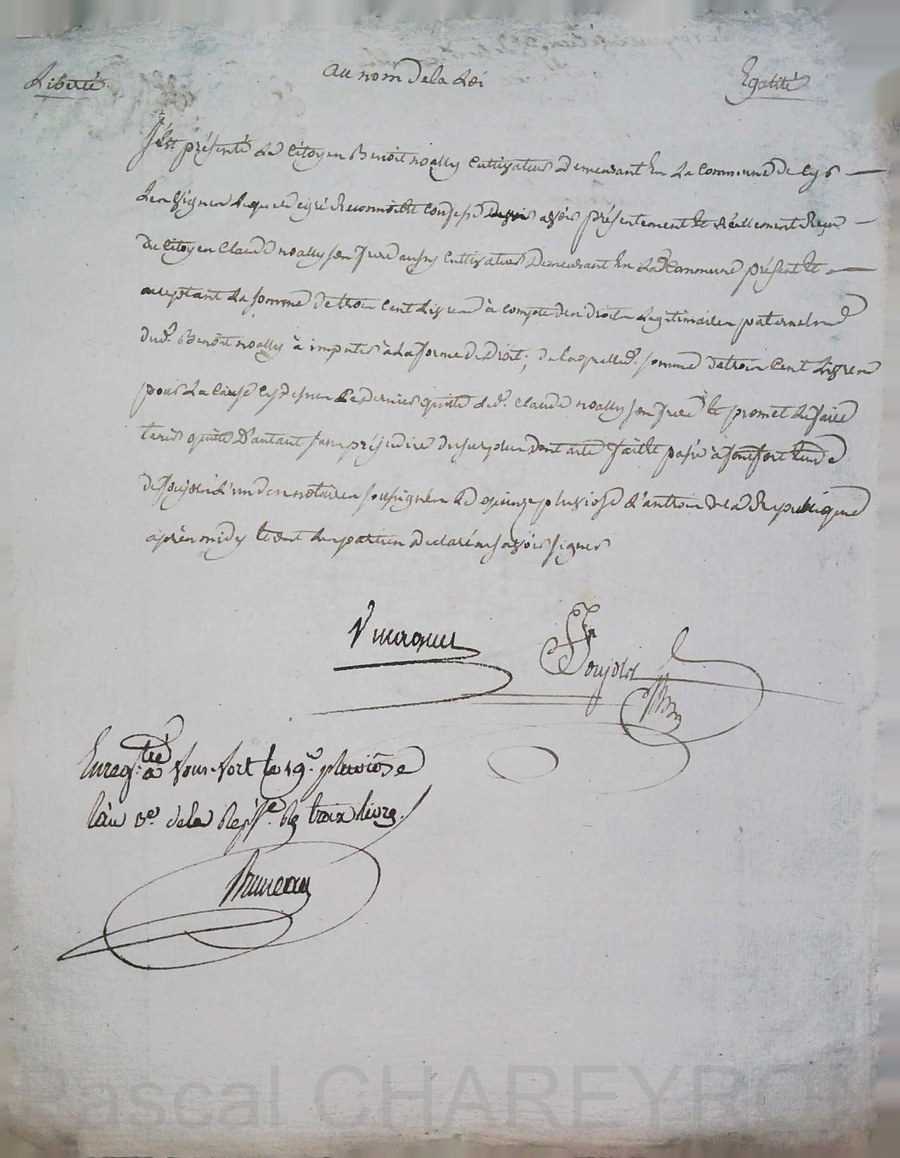 Liberté au nom de la Loi Egalité
S'est présenté Le Citoyen Benoit noally Cultivateur Demeurant En La Commune de
Lequel de gré Reconnoit Et Confesse avoir présentement Et Réellement Reçu
Du Citoyen Claude noally son frere aussy Cultivateur Demeurant En La De Commune présent Et
acceptant La somme De trois Cent Livres à compte des droits Legitimaires paternels
dud. Benoit noally à imputer à La forme de Droit; de laquelle de. somme de trois Cent Livres
pour La Cause Cy dessus Ce dernier quitte led. Claude noally son frere Et promet Le faire
tenir quitte D'autant sans préjudice du surplus dont acte fait Et passé à
L'un des notaires soussignés Le quinze pluviose L'an trois de La Republique
après midy Les parties Declaré ne savoir signer
Foujols
Enreg.tré à le 19e. pluviôse
l'an 3e. de la Rep. trois livres.
Pascal CHAREYRON